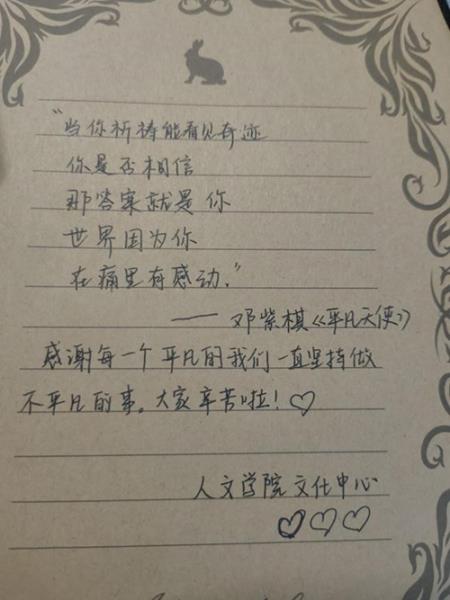 “当你祈祷能看见奇迹
你是否相信
那答案就是你
世界因为你
在痛里有感动.”
——邓紫棋《平凡天使》
感谢每一个平凡的我们一直坚持做
不平凡的事。大家辛苦啦！♡
人文学院文化中心
♡♡♡